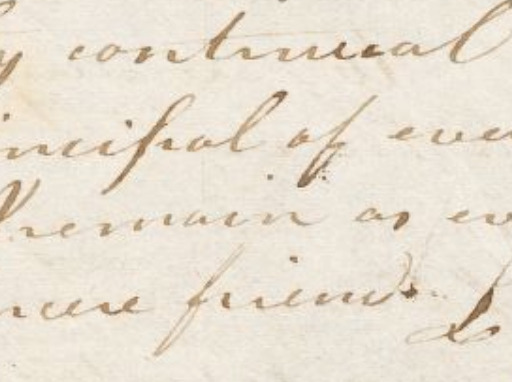 y continual
incipal of eve
I remain as ev
ncere friend